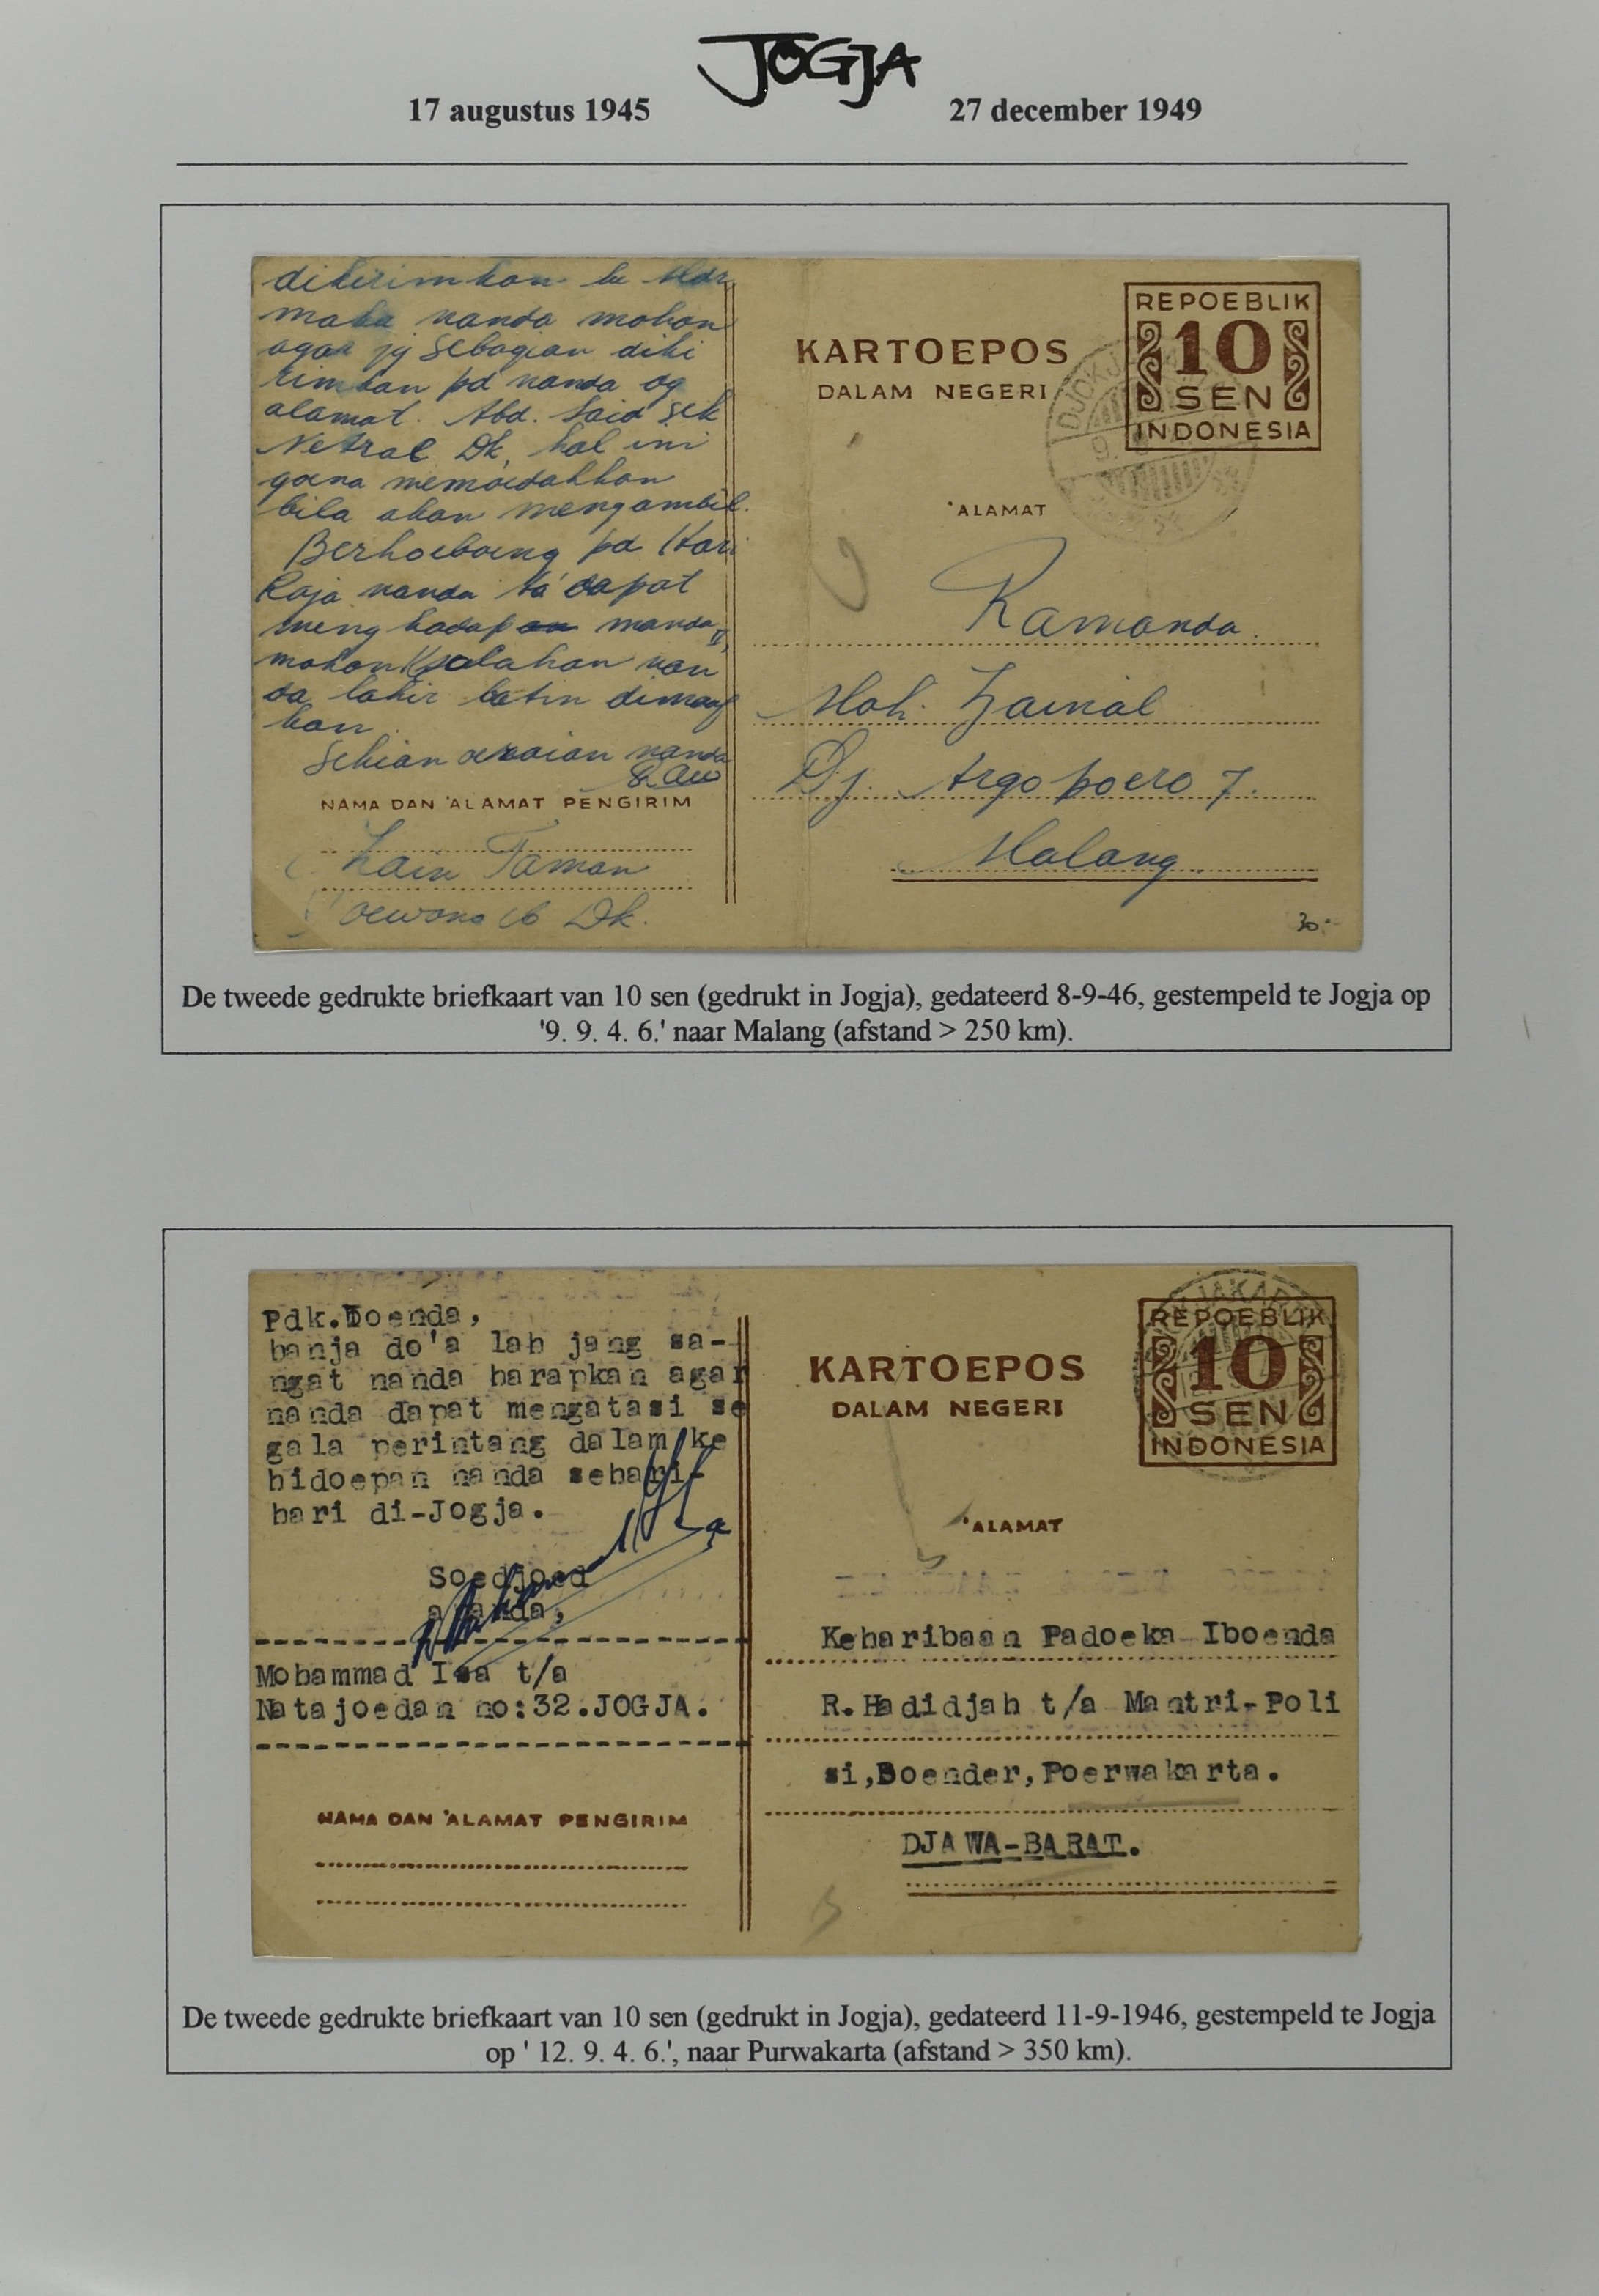 JOGJA
17 augustus 1945 27 december 1949
dikirimkan ke Mdr
maka nanda mohon
agar jg sebagian diki
rimkan pd nanda dg
alamat. Abd. Said Sek
Netral Dk, hal ini
goena memoedahkan
bila akan mengambil.
Berhoeboeng pd Hari
Raja nanda ta' dapat
menghadap manda,
mohon Ksalahan nan
da lahir batin dimaaf
kan.
Sekian oeraian nanda
NAMA DAN 'ALAMAT PENGIRIM
Zain Taman
oewono 16 Dk.
KARTOEPOS
DALAM NEGERI
REPOEBLIK
10
SEN
INDONESIA
DJOKJ
9.
'ALAMAT
Ramanda
Moh. Zainal
Dj. Argopoero 7.
Malang
30.-
De tweede gedrukte briefkaart van 10 sen (gedrukt in Jogja), gedateerd 8-9-46, gestempeld te Jogja op
'9. 9. 4. 6.' naar Malang (afstand > 250 km).
Pdk.Iboenda,
hanja do'a lah jang sa-
ngat nanda harapkan agar
nanda dapat mengatasi se
gala perintang dalam ke
hidoepan nanda sehari-
hari di-Jogja.
Soedjoed
ananda,
Mohammad Isa t/a
Natajoedan no:32.JOGJA.
NAMA DAN 'ALAMAT PENGIRIM
KARTOEPOS
DALAM NEGERI
REPOEBLIK
10
SEN
INDONESIA
'ALAMAT
Keharibaan Padoeka Iboenda
R.Hadidjah t/a Mantri-Poli
si,Boender,Poerwakarta.
DJAWA-BARAT.
De tweede gedrukte briefkaart van 10 sen (gedrukt in Jogja), gedateerd 11-9-1946, gestempeld te Jogja
op ' 12. 9. 4. 6.', naar Purwakarta (afstand > 350 km).